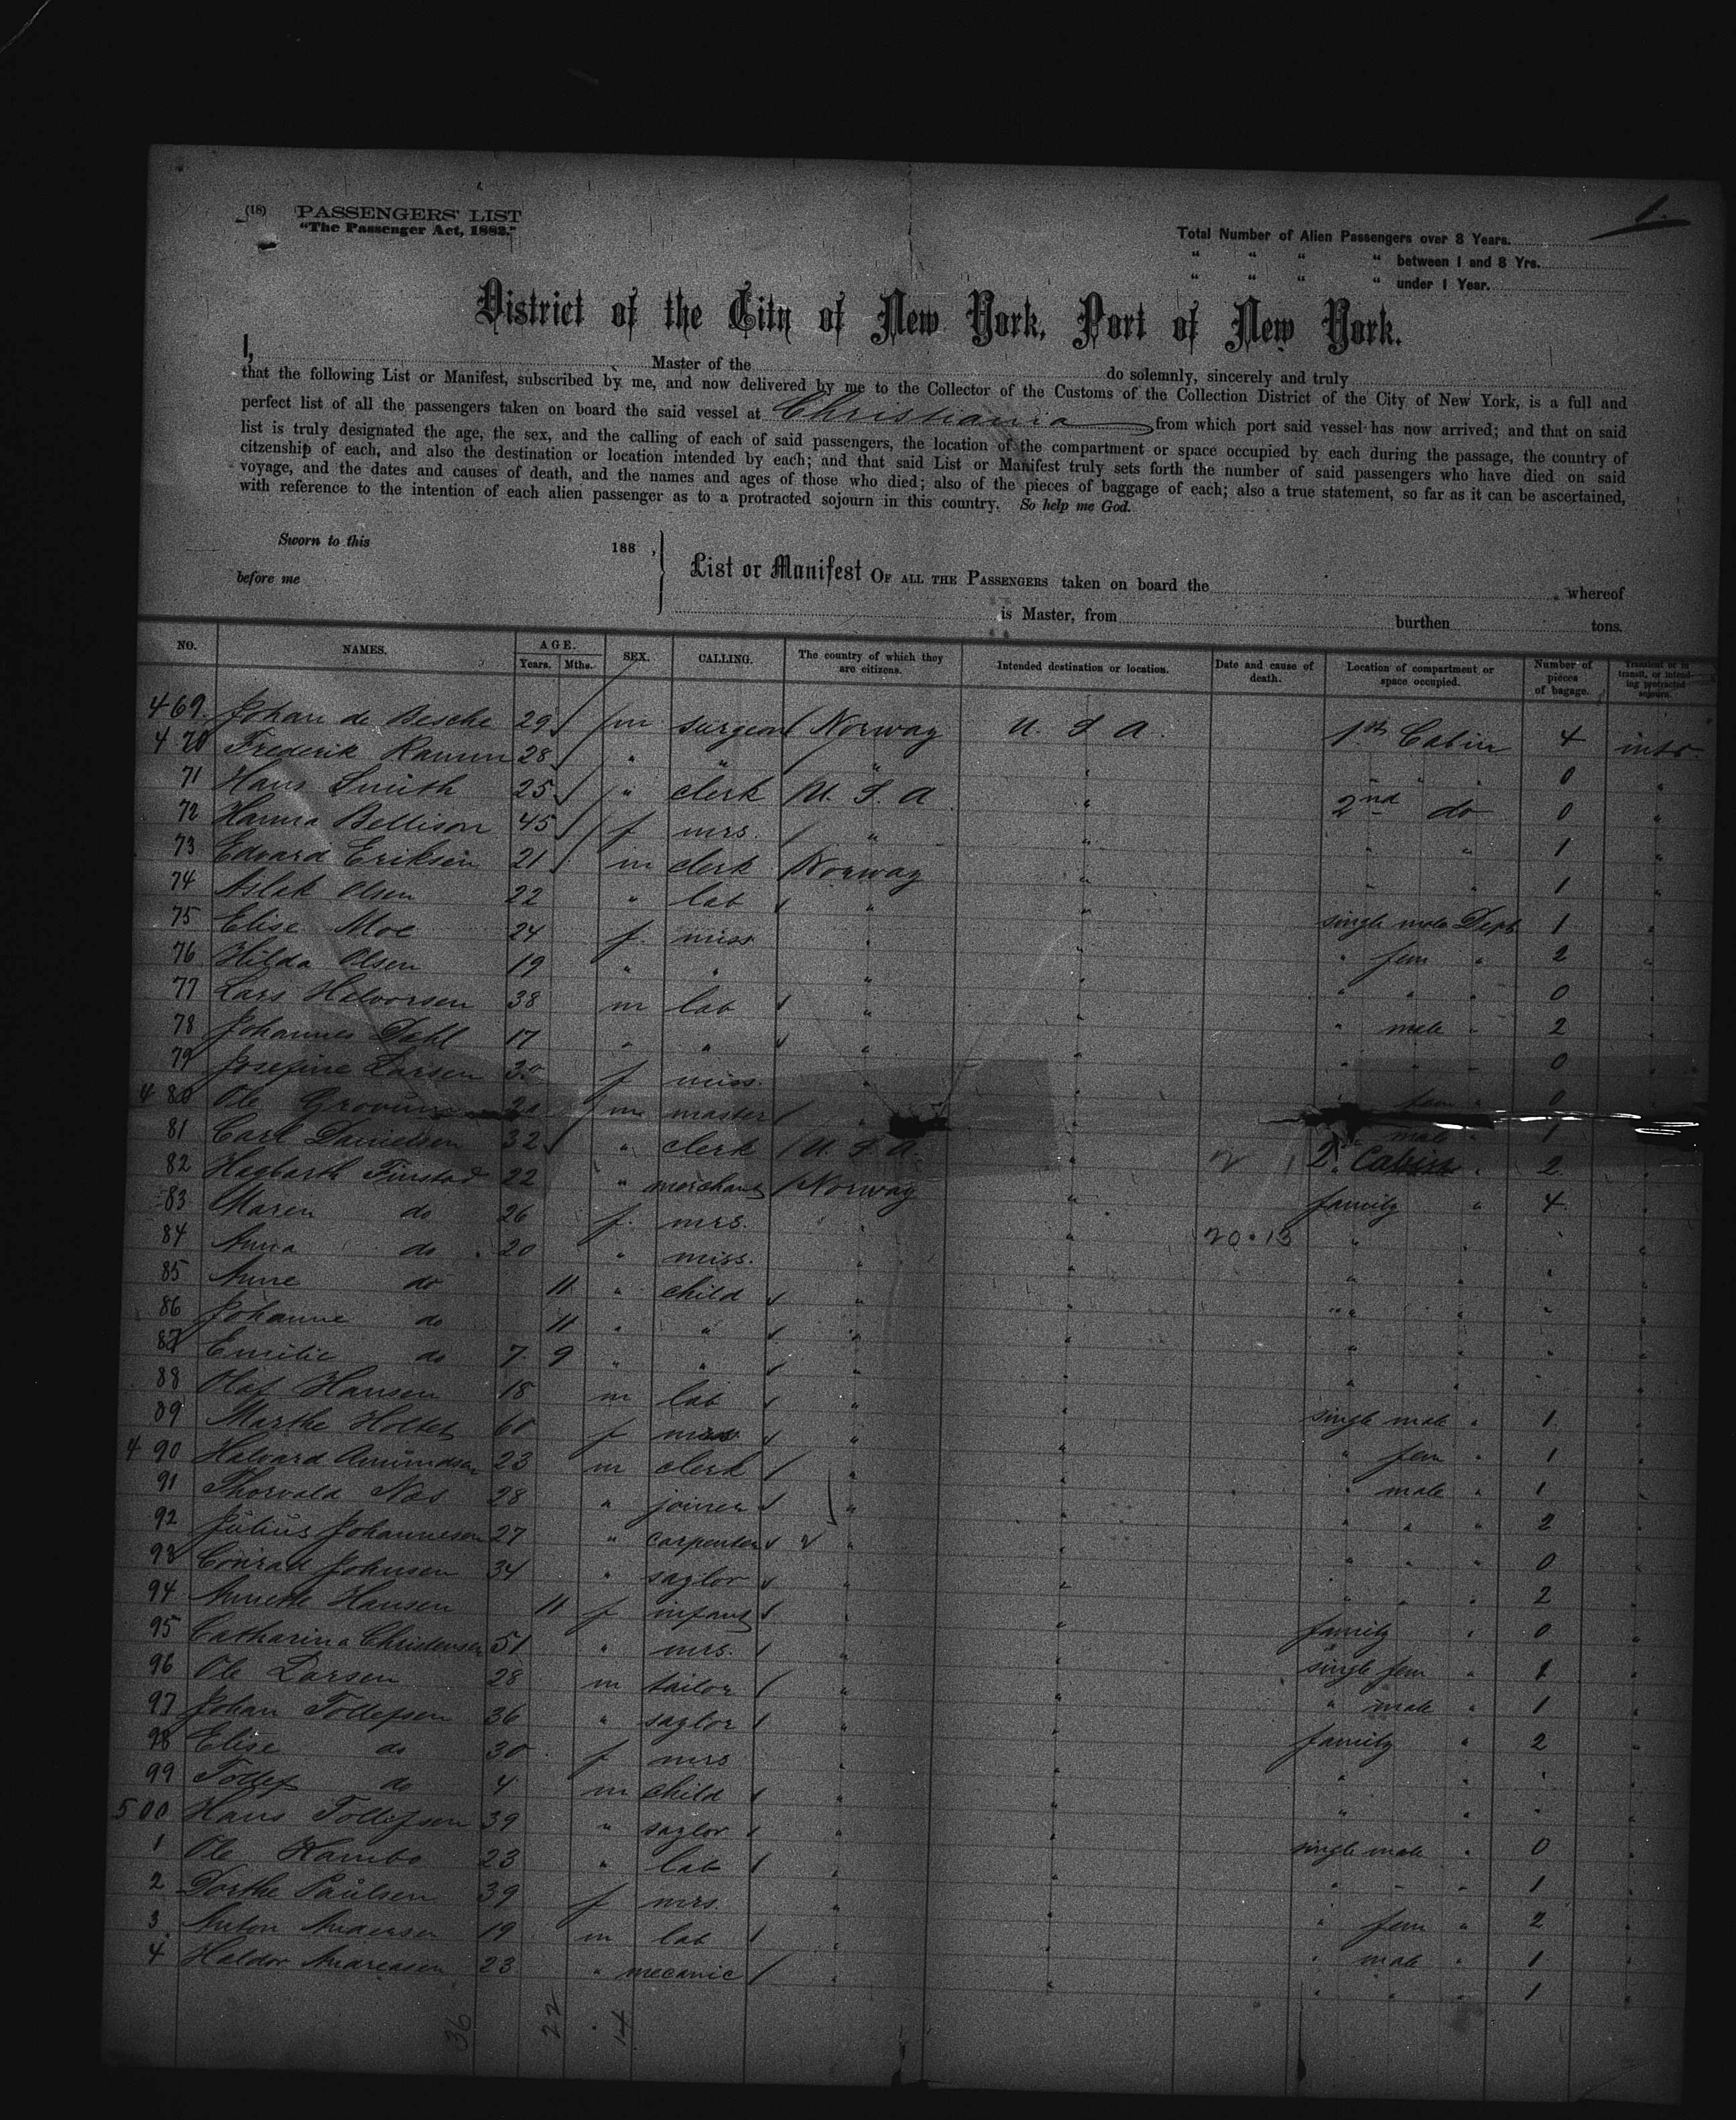 1.
(18) PASSENGERS' LIST
"The Passenger Act, 1882."
Total Number of Alien Passengers over 8 Years.
" " " " between 1 and 8 Yrs.
" " " " under 1 Year.
District of the City of New York, Port of New York.
I, Master of the do solemnly, sincerely and truly
that the following List or Manifest, subscribed by me, and now delivered by me to the Collector of the Customs of the Collection District of the City of New York, is a full and
perfect list of all the passengers taken on board the said vessel at Christiania from which port said vessel has now arrived; and that on said
list is truly designated the age, the sex, and the calling of each of said passengers, the location of the compartment or space occupied by each during the passage, the country of
citzenship of each, and also the destination or location intended by each; and that said List or Manifest truly sets forth the number of said passengers who have died on said
voyage, and the dates and causes of death, and the names and ages of those who died; also of the pieces of baggage of each; also a true statement, so far as it can be ascertained,
with reference to the intention of each alien passenger as to a protracted sojourn in this country. So help me God.
Sworn to this 188 ,
before me
List or Manifest OF ALL THE PASSENGERS taken on board the , whereof
is Master, from burthen tons.
NO. NAMES. AGE. Years. Mths. SEX. CALLING. The country of which they are citizens. Intended destination or location. Date and cause of death. Location of compartment or space occupied. Number of pieces of bagage. Transient or in transit, or intending protracted sojourn.
469 Johan de Besche 29 m surgeon Norway U. S A. 1st Cabin 4
470 Frederik Ramm 28 " " " " " " 0 "
71 Hans Smith 25 " clerk U. S. A " 2nd do 0 "
72 Hanna Bellison 45 f mrs. " " " " 1 "
73 Edvard Eriksen 21 m clerk Norway " " " 1 "
74 Aslak Olsen 22 " lab " " single male Dept 1 "
75 Elise Moe 24 f. miss " " " fem " 2 "
76 Hilda Olsen 19 " " " " " " " 0 "
77 Lars Halvorsen 38 m lab " " " male " 2 "
78 Johannes Dahl 17 " " " " " " " 0 "
79 Josefine Larsen 30 f miss. " " " fem " 0 "
480 Ole m master " " " male " 1 "
81 Carl Danielsen 32 " clerk U. S. A. " 2. Cabin " 2 "
82 Hagbarth Finstad 22 " merchant Norway " family " 4 "
83 Maren do 26 f. mrs. " " 20.13 " " " "
84 Anna do 20 " miss. " " " " " "
85 Anne do 11 " child " " " " " "
86 Johanne do 11 " " " " " " " "
87 Emilie do 7 9 " " " " " " " "
88 Olaf Hansen 18 m lab " " single male " 1 "
89 Marthe Holtet 60 f " " " fem " 1 "
490 Halvard Amundsen 23 m clerk " " " male " 1 "
91 Thorvald Nos 28 " joiner " " " " " 2 "
92 Julius Johannesen 27 " carpenter " " " " " 0 "
93 Conrad Johnsen 34 " saylor " " " " " 2 "
94 Annette Hansen 11 f infant " " family " 0 "
95 Catharina Christensen 51 " mrs. " " single fem " 1 "
96 Ole Larsen 28 m tailor " " " male " 1 "
97 Johan Tollefsen 36 " saylor " " family " 2 "
98 Elise do 30 f mrs " " " " " "
99 Tollef do 4 m child " " " " " "
500 Hans Tollefsen 39 " saylor " " single male " 0 "
1 Ole Hambo 23 " lab " " " " " 1 "
2 Dorthe Paulsen 39 f mrs. " " " fem " 2 "
3 Anton Andersen 19 m lab " " " male " 1 "
4 Haldor Andreasen 23 " mecanic " " " " " 1 "
36 22 14